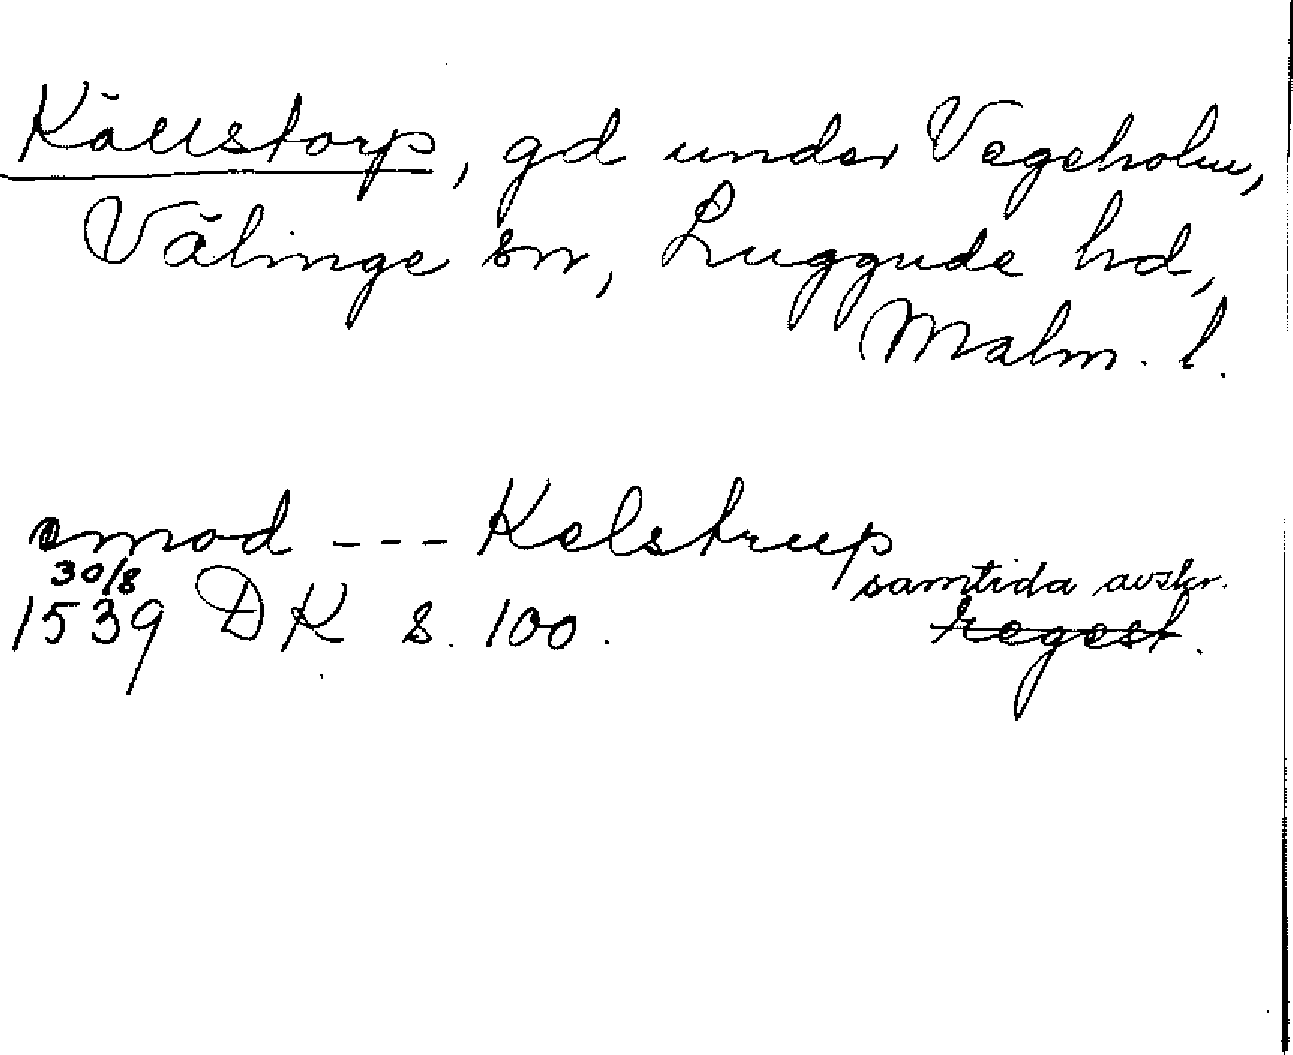 Källstorp, gd under Vegeholm,
Välinge sn, Luggude hd,
Malm. l.
emod --- Kelstrup
samtida avskr.
30/8
1539 DK s. 100. regest.